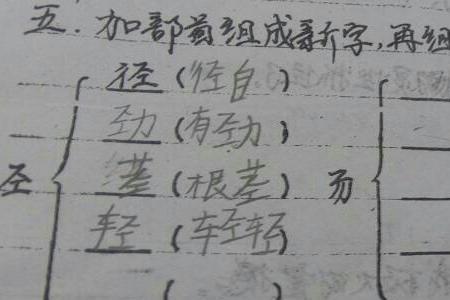 五.加部首组成新字,再组
径(径自)
劲(有劲)
圣 茎(根茎) 万
轻(车轻)
(